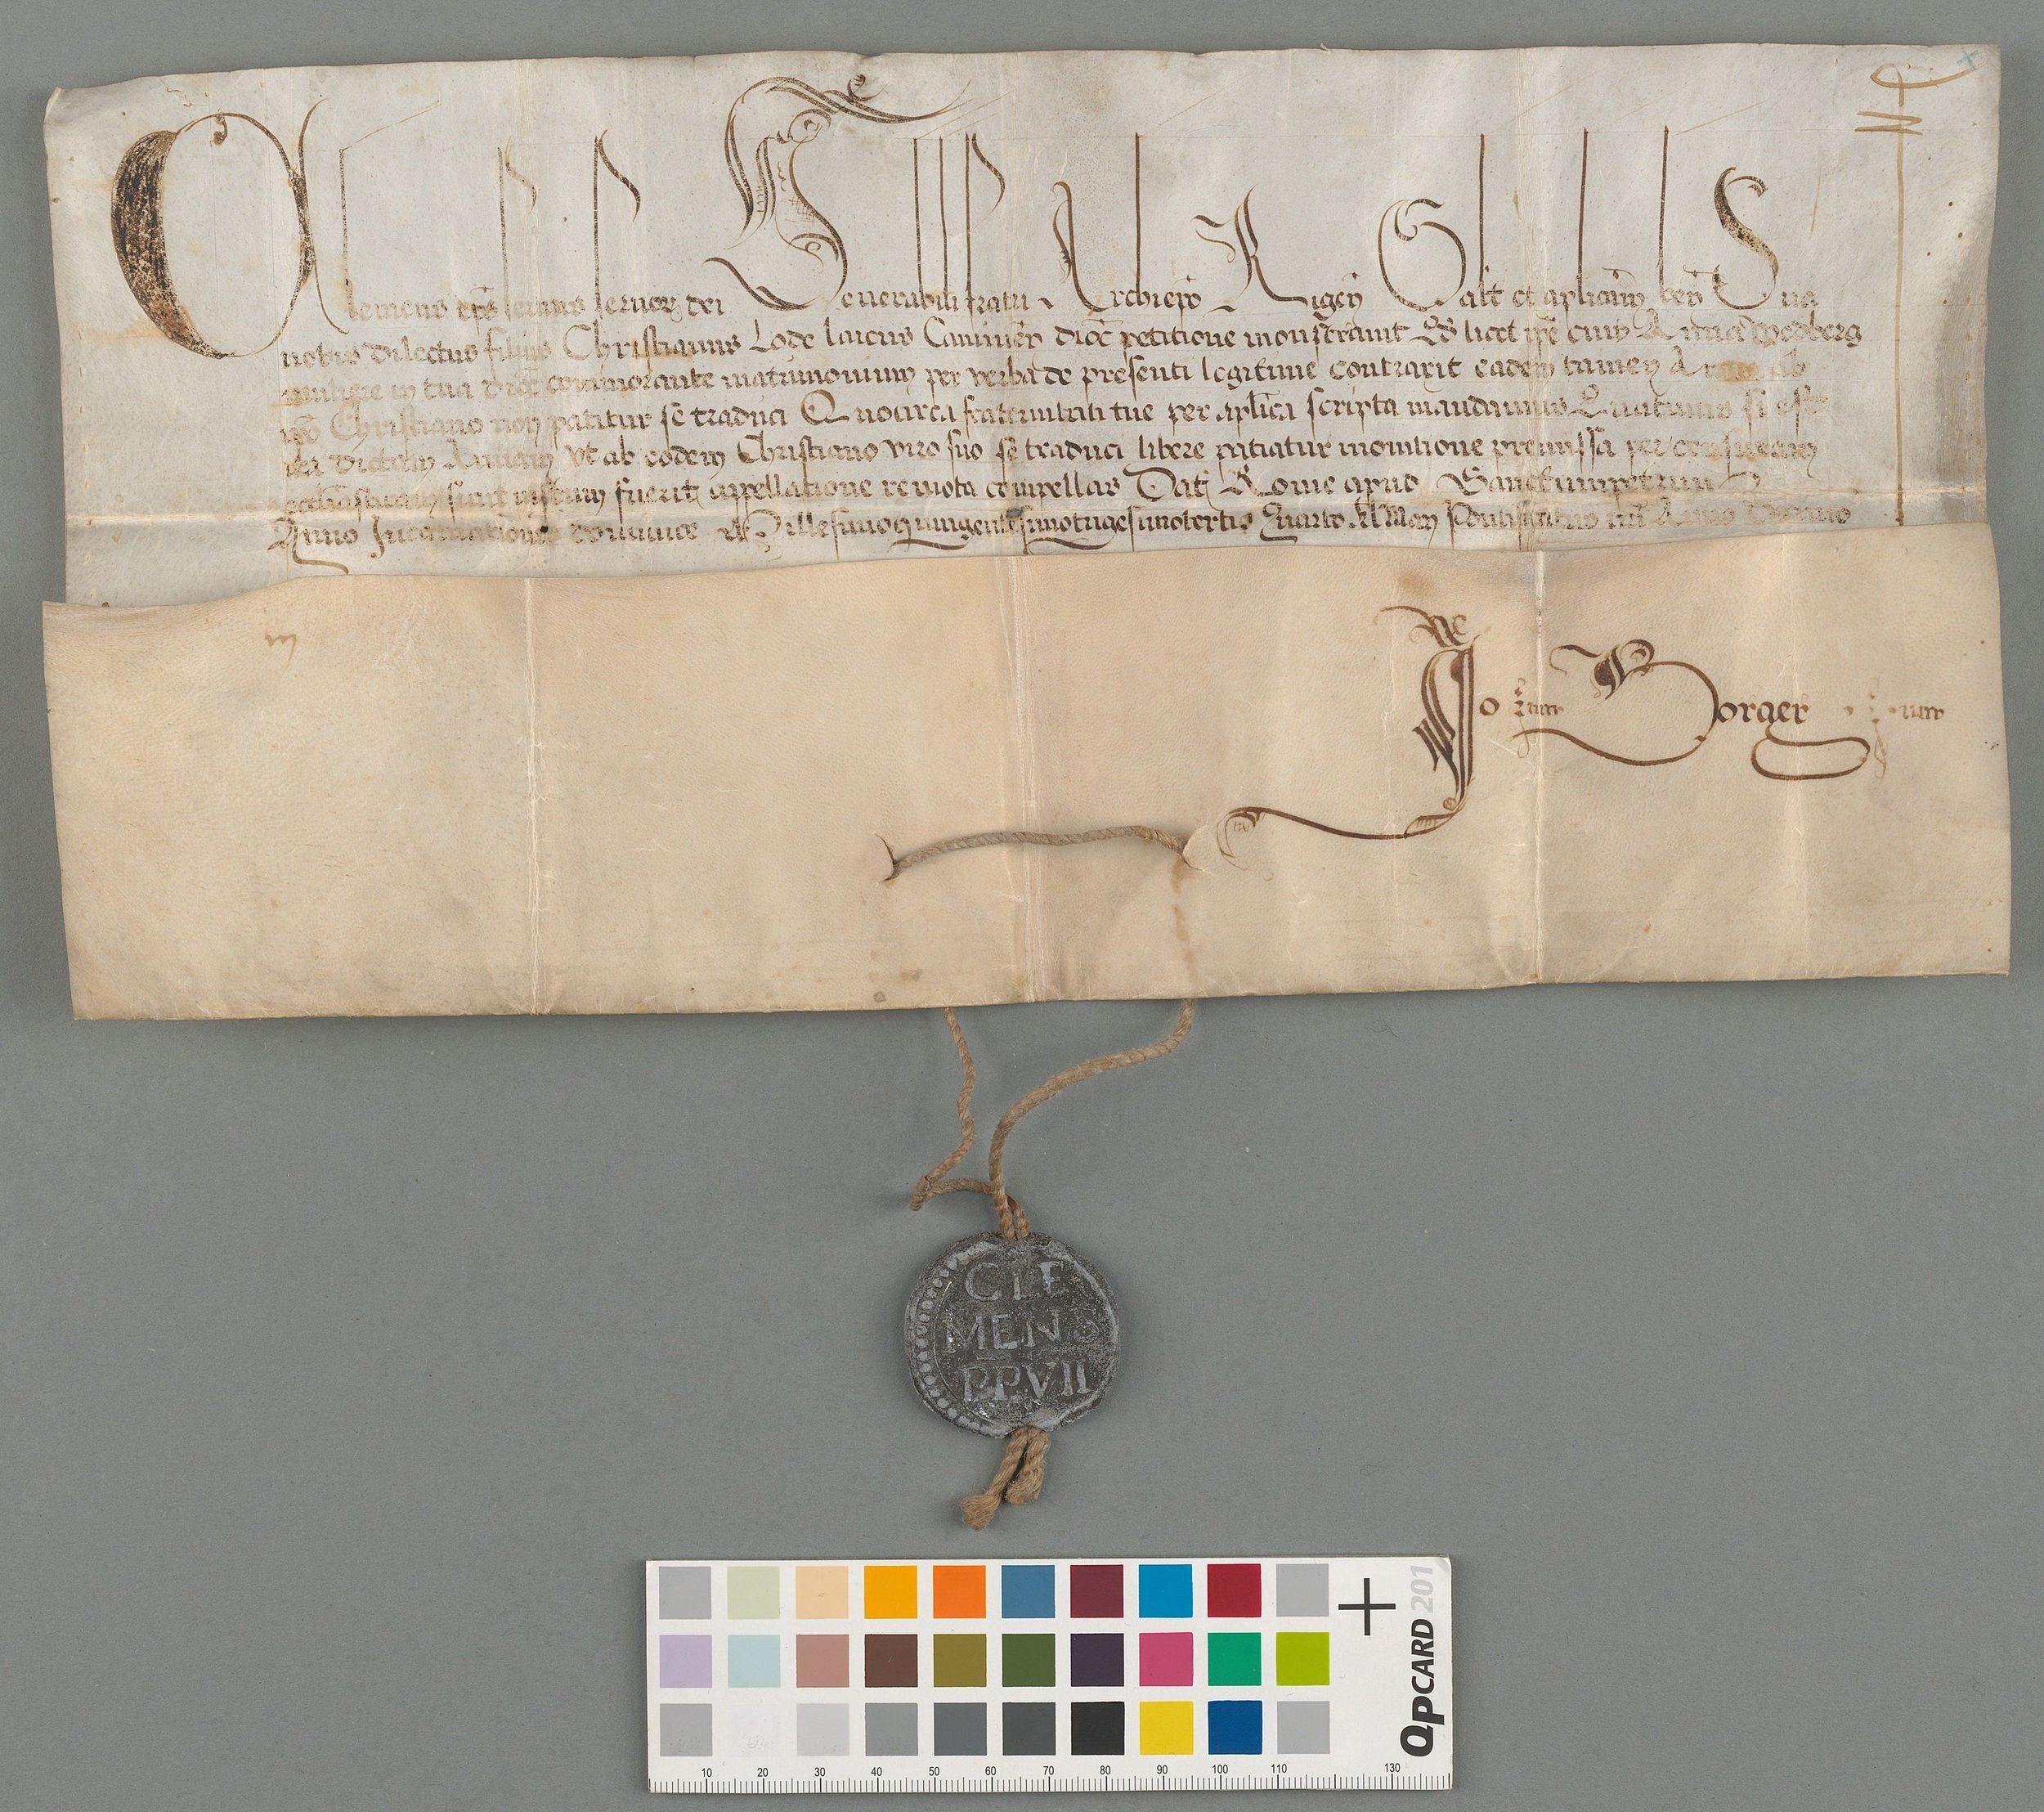 Clemens ep̄s servus servor̄ dei Venerabili fratri Archiep̄o Rigeñ Salt̄ et aplicam̄ ben̄ Sua
nobis dilectus filius Christianus Lode laicus Camineñ dioc̄ petitione monstravit Qd̄ licet ip̄e cum Anna Wedberg
muliere in tua dioc̄ commorante matrimonium per verba de presenti legitime contraxit eadem tamen Anna ab
ip̄o Christiano non patitur se traduci Quocirca fraternitati tue per aplīca scripta mandamus Quatinus si est
ita dictam Annam vt ab eodem Christiano viro suo se traduci libere patiatur monitione premissa per censuram
ecclīasticam sicut iustum fuerit appellatione remota compellas Dat̄ Rome apud Sanctumpetrum
Anno Incarnationis dominice Millesimoquingentesimotrigesimotertio Quarto kl̄ Maij Pontificatus nr̄i Anno Decimo
m
Jo
Borger
CLE
MENS
PP VII
QPCARD 201
10 20 30 40 50 60 70 80 90 100 110 130